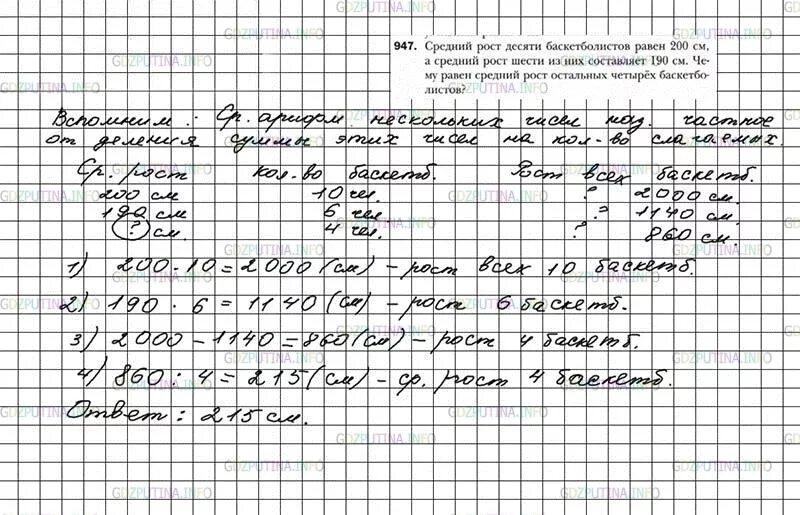 GDZPUTINA.INFO GDZPUTINA.INFO
947. Средний рост десяти баскетболистов равен 200 см,
а средний рост шести из них составляет 190 см. Че-
му равен средний рост остальных четырёх баскетбо-
листов?
Вспомним: Ср. арифм нескольких чисел наз. частное
от деления суммы этих чисел на кол-во слагаемых.
Ср. рост кол-во баскетб. Рост всех баскетб.
200 см 10 чел. ? 2000 см.
190 см 6 чел. ? 1140 см.
? см. 4 чел. ? 860 см.
1) 200 · 10 = 2000 (см) – рост всех 10 баскетб.
2) 190 · 6 = 1140 (см) – рост 6 баскетб.
3) 2000 – 1140 = 860 (см) – рост 4 баскетб.
4) 860 : 4 = 215 (см) – ср. рост 4 баскетб.
Ответ: 215 см.
GDZPUTINA.INFO GDZPUTINA.INFO GDZPUTINA.INFO
GDZPUTINA.INFO GDZPUTINA.INFO
GDZPUTINA.INFO GDZPUTINA.INFO